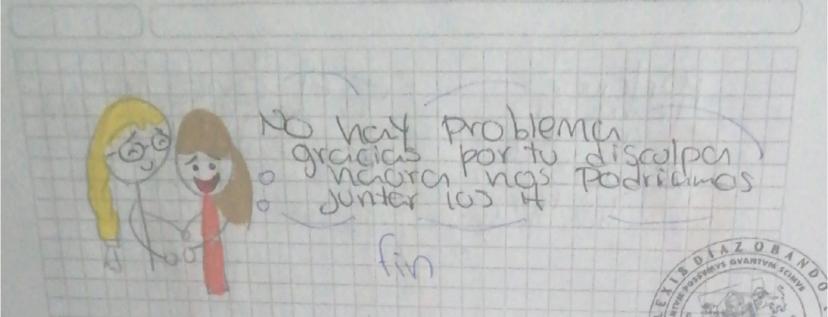 No hay problema
gracias por tu disculpa
haora nos podriamos
juntar las 4
fin
LEXIS DIAZ OBANDO
POSSUMUS QVANTVM SCIMVS